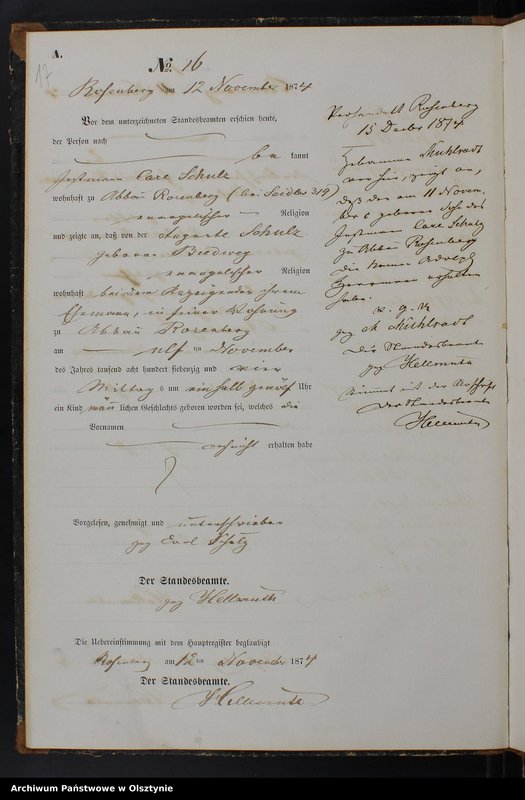 A.
17
No. 16
Rosenberg am 12 November 1874
Vor dem unterzeichneten Standesbeamten erschien heute,
der Person nach
be kannt
Instmann Carl Schulz
wohnhaft zu Abbau Rosenberg (bei Seidler 319)
evangelischer Religion
und zeigte an, daß von der Auguste Schulz
geborne
evangelischer Religion
wohnhaft bei dem Anzeigenden ihrem
Ehemann, in seiner Wohnung
zu Abbau Rosenberg
am elf ten November
des Jahres tausend acht hundert siebenzig und vier
Mittags um ein halb zwölf Uhr
ein Kind männ lichen Geschlechts geboren worden sei, welches die
Vornamen
noch nicht erhalten habe
Vorgelesen, genehmigt und unterschrieben
gez Carl Schulz
Der Standesbeamte.
gez Hellmuth
Die Uebereinstimmung mit dem Hauptregister beglaubigt
Rosenberg am 12 ten November 1874
Der Standesbeamte.
Hellmuth
Rosenberg
15 1874
Hebamme Mühlradt
zeigt an,
daß der am 11 Novem
ber c geborne Sohn des
Instmann Carl Schulz
zu Abbau Rosenberg
die Namen Adolph
Hermann erhalten
habe.
v. g. u.
gez Mühlradt
Der Standesbeamte
gez Hellmuth
stimmt mit der Urschrift
Der Standesbeamte
Hellmuth
Archiwum Państwowe w Olsztynie